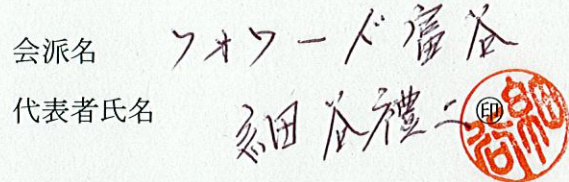 会派名 フォワード富谷
代表者氏名 細谷禮二 ㊞ 細谷